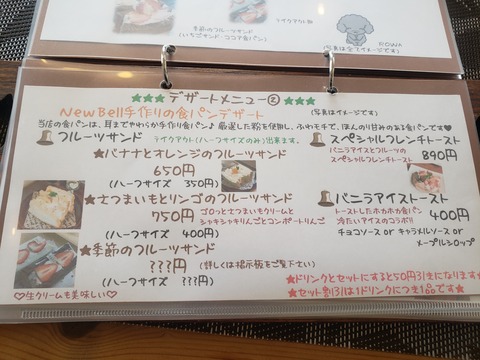 季節のフルーツサンド
(いちごサンド・ココア食パン)
テイクアウト可
ROWA
(写真は全てイメージです)
★★★ デザートメニュー② ★★★
NewBell手作りの食パンデザート
(写真はイメージです)
当店の食パンは、耳までやわらか手作り食パン♪厳選した粉を使用し、ふわモチで、ほんのり甘みのある食パンです♥
フルーツサンド テイクアウト(ハーフサイズのみ)出来ます。
★バナナとオレンジのフルーツサンド
650円
(ハーフサイズ 350円)
★さつまいもとリンゴのフルーツサンド
750円 ゴロッとさつまいもクリームと
シャキシャキりんごとコンポートりんご
(ハーフサイズ 400円)
★季節のフルーツサンド
???円 (詳しくは掲示板をご覧下さい)
(ハーフサイズ ???円)
♡生クリームも美味しい♡
スペシャルフレンチトースト
バニラアイスとフルーツの
スペシャルフレンチトースト
890円
バニラアイストースト
トーストしたホカホカ食パン
冷たいアイスのコラボ!!
400円
チョコソース or キャラメルソース or
メープルシロップ
★ドリンクとセットにすると50円引きになります★
★セット割引は1ドリンクにつき1品です★